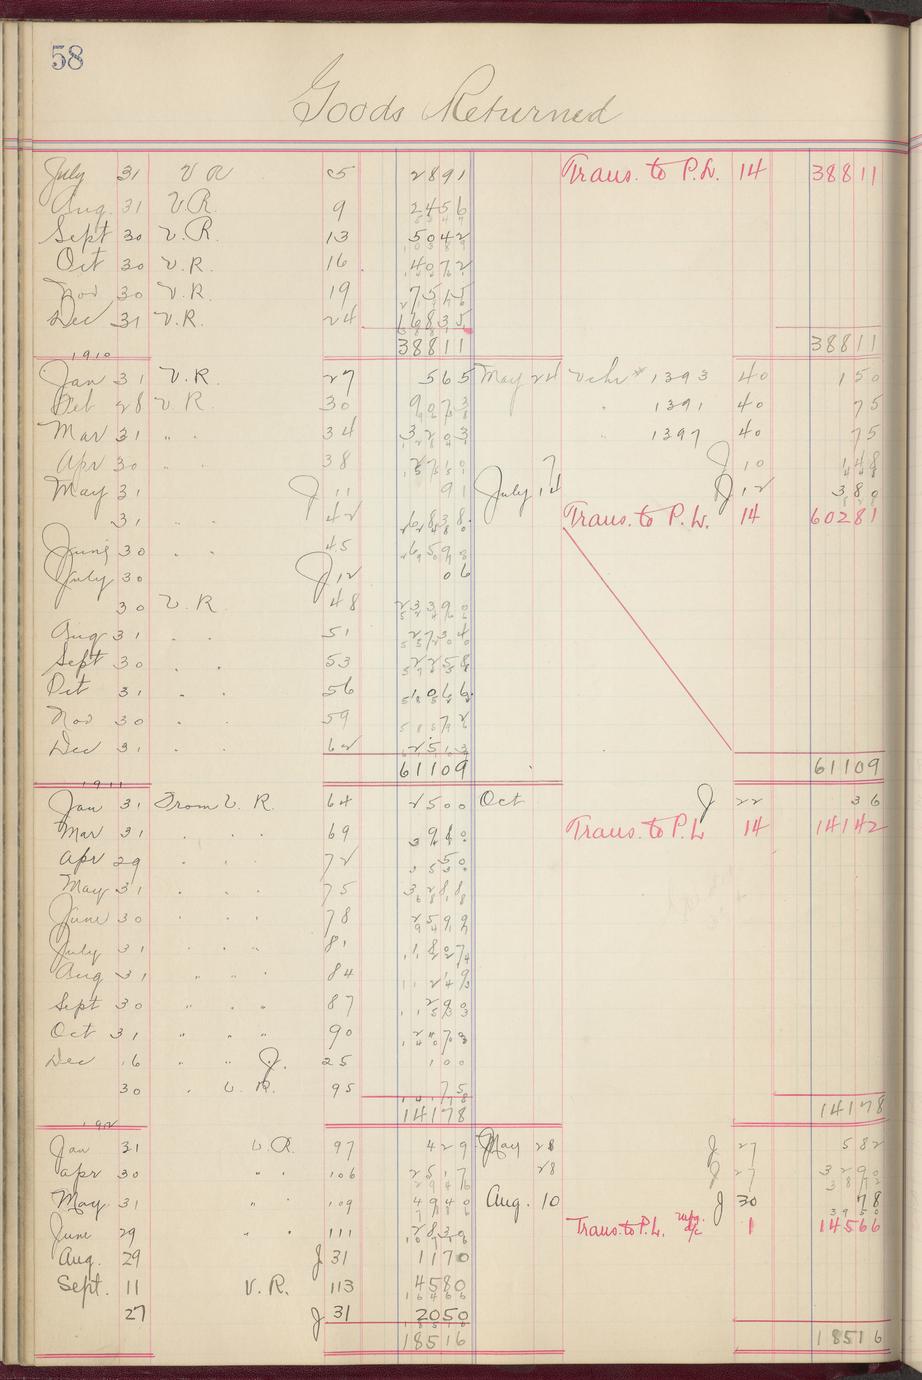 58
Goods Returned
July 31 V R 5 2891 Trans. to P.L. 14 38811
Aug. 31 V.R. 9 2456
Sept 30 V.R. 13 5042
Oct 30 V.R. 16 4072
Nov 30 V.R. 19 7515
Dec 31 V.R. 24 16835
38811 38811
1910
Jan 31 V.R. 27 565 May 24 Vchr # 1393 40 150
Feb 28 V.R. 30 9073 " 1391 40 75
Mar 31 " " 34 3203 " 1397 40 75
Apr 30 " " 38 J 10 148
May 31 J 11 91 July 14 J 12 380
31 " " 42 Trans. to P.L. 14 60281
June 30 " " 45
July 30 J 12 06
30 V.R. 48 23390
Aug 31 " " 51 2734
Sept 30 " " 53 2258
Oct 31 " " 56
Nov 30 " " 59 72
Dec 31 " " 62 2513
61109 61109
1911
Jan 31 From V.R. 64 2500 Oct J 22 36
Mar 31 " " 69 Trans. to P.L 14 14142
Apr 29 " " 72 50
May 31 " " " 75 3288
June 30 " " " 78 2599
July 31 " " " 81
Aug 31 " " " 84
Sept 30 " " " 87 290
Oct 31 " " " 90
Dec 16 " " J. 25 100
30 " V.R. 95 75
14178 14178
1912
Jan 31 V.R. 97 429 May 28 J 27 582
Apr 30 " " 106 2517 28 J 27 3290
May 31 " " 109 4940 Aug. 10 J 30 78
June 29 " " 111 Trans. to P.L. mfg. a/c 1 14566
Aug. 29 J 31 1170
Sept. 11 V.R. 113 4580
27 J 31 2050
18516 18516